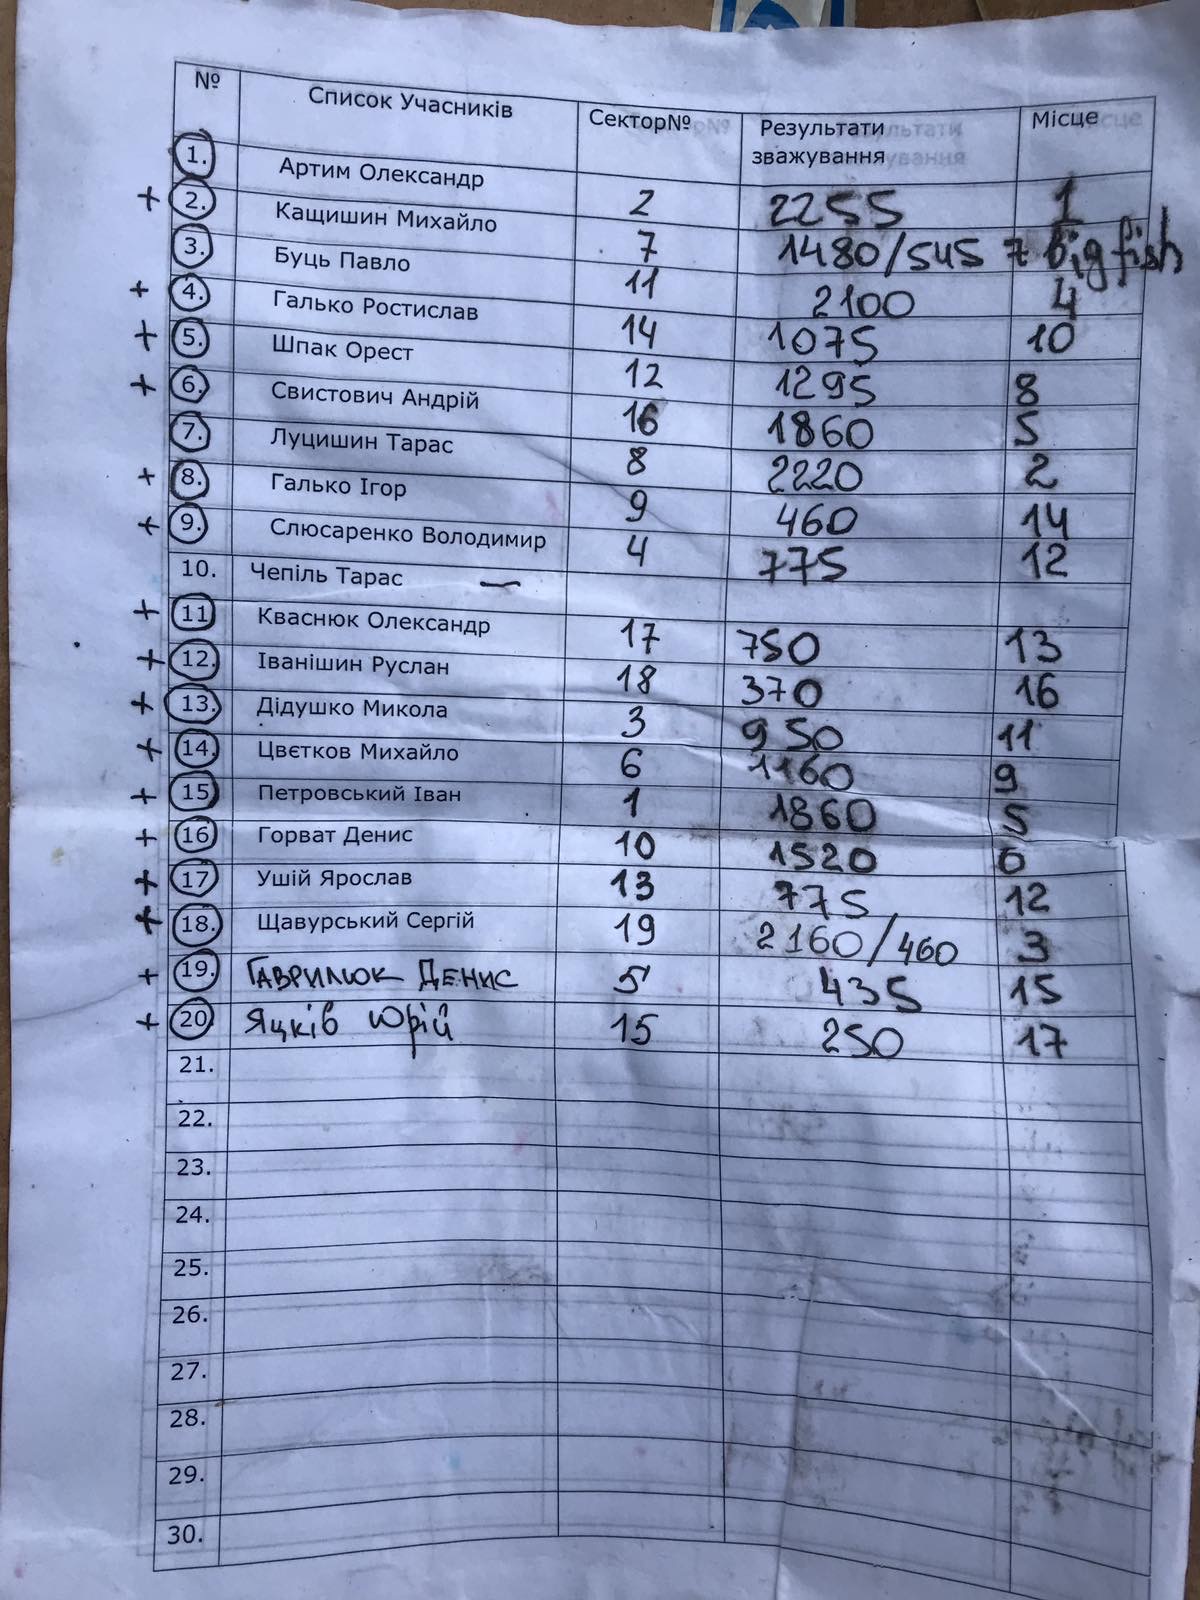 № Список Учасників Сектор№ Результати зважування Місце
1. Артим Олександр 2 2255 1
+ 2. Кащишин Михайло 7 1480/545 7 big fish
3. Буць Павло 11 2100 4
+ 4. Галько Ростислав 14 1075 10
+ 5. Шпак Орест 12 1295 8
+ 6. Свистович Андрій 16 1860 5
7. Луцишин Тарас 8 2220 2
+ 8. Галько Ігор 9 460 14
+ 9. Слюсаренко Володимир 4 775 12
10. Чепіль Тарас —
+ 11 Кваснюк Олександр 17 750 13
+ 12. Іванішин Руслан 18 370 16
+ 13. Дідушко Микола 3 950 11
+ 14. Цвєтков Михайло 6 1160 9
+ 15. Петровський Іван 1 1860 5
+ 16. Горват Денис 10 1520 6
+ 17. Ушій Ярослав 13 775 12
+ 18. Щавурський Сергій 19 2160/460 3
+ 19. Гаврилюк Денис 5 435 15
+ 20 Яцків Юрій 15 250 17
21.
22.
23.
24.
25.
26.
27.
28.
29.
30.